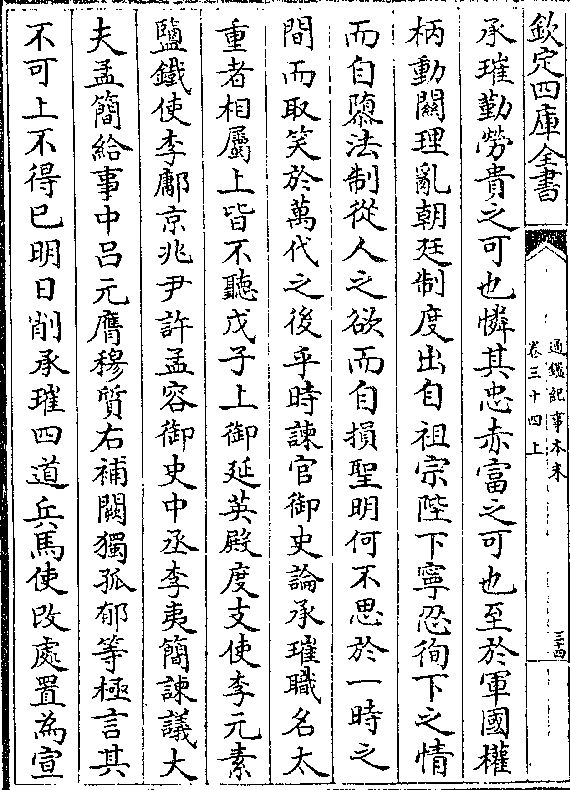 欽定四庫全書
通鑑紀事本末
卷三十四上
三十四
承璀勤勞貴之可也憐其忠赤富之可也至於軍國權
柄動關理亂朝廷制度出自祖宗陛下寧忍徇下之情
而自隳法制從人之欲而自損聖明何不思於一時之
間而取笑於萬代之後乎時諫官御史論承璀職名太
重者相屬上皆不聽戊子上御延英殿度支使李元素
鹽鐵使李鄘京兆尹許孟容御史中丞李夷簡諫議大
夫孟簡給事中呂元膺穆質右補闕獨孤郁等極言其
不可上不得已明日削承璀四道兵馬使改處置為宣